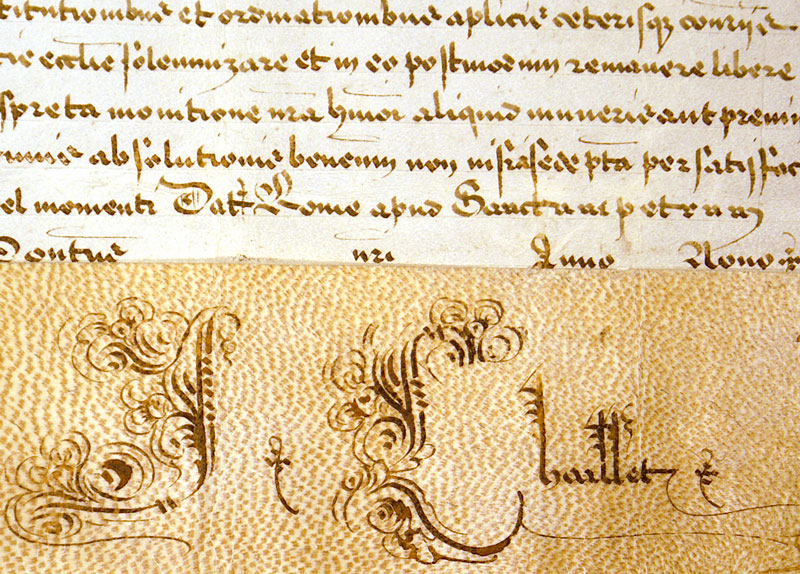 titutionibus et ordinationibus aplicis ceterisq contrijs
ecclie solemnizare et in eo postmodum remanere libere
spreta monitione nra hmoi aliquid muneris aut premii
absolutionis beneficium non nisi a sede pta per satisfac
el momenti Dat Rome apud Sanctum petrum
Pontus nri Anno Nono
J. Chaillet